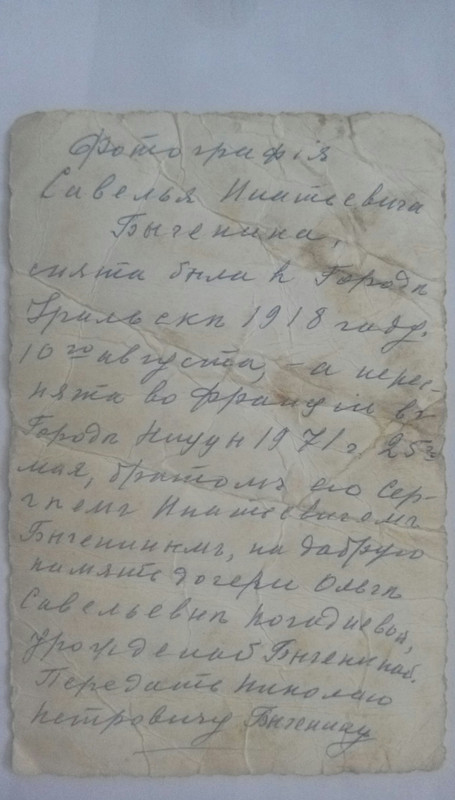 Фотографія
Савелья Ипатьевича
Быченика,
снята была в Городѣ
Уральскѣ 1918 году.
10го августа, - а перес-
нята во Франціи въ
Городѣ Ниццѣ 1971 г. 25го
мая, братомъ его Сер-
гѣемъ Ипатьевичемъ
Быченинымъ, на добрую
память дочери Ольгѣ
Савельевнѣ Погадаевой,
урожденной Бычениной.
Передать Николаю
Петровичу Быченину